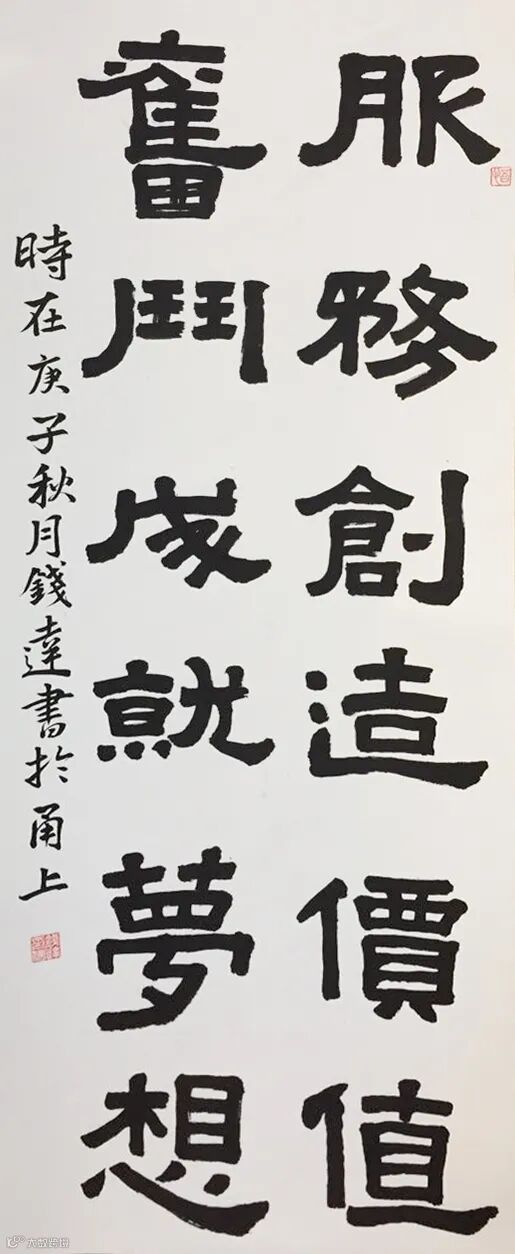 服務創造價值
奮鬥成就夢想
時在庚子秋月錢達書於甬上
大数跨境